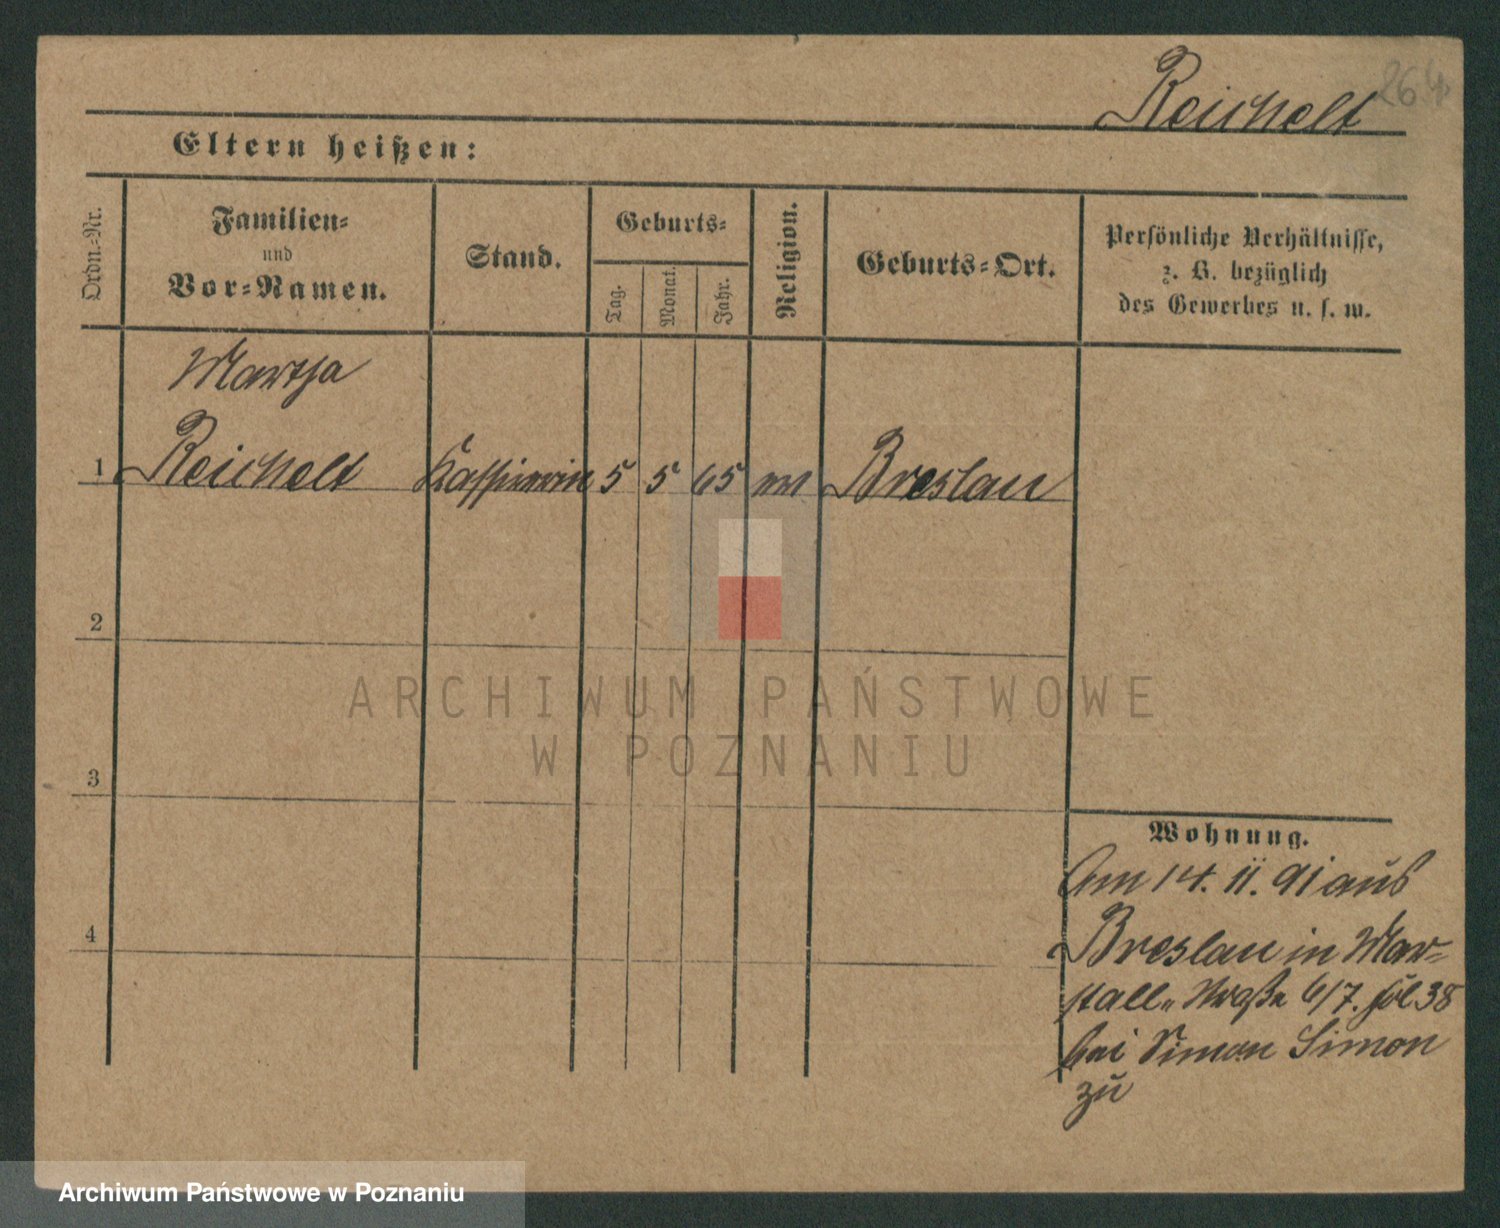 Reichelt
264
Eltern heißen:
Ordn.=Nr.
Familien=
und
Vor=Namen.
Stand.
Geburts=
Tag.
Monat.
Jahr.
Religion.
Geburts=Ort.
Persönliche Verhältnisse,
z. B. bezüglich
des Gewerbes u. s. w.
Martha
1 Reichelt Kassirerin 5 5 65 Breslau
2
3
4
Wohnung.
Am 14. 11. 91 aus
Breslau in Mar=
stall Straße 6/7. 38
bei Simon Simon
zu
ARCHIWUM PAŃSTWOWE
W POZNANIU
Archiwum Państwowe w Poznaniu